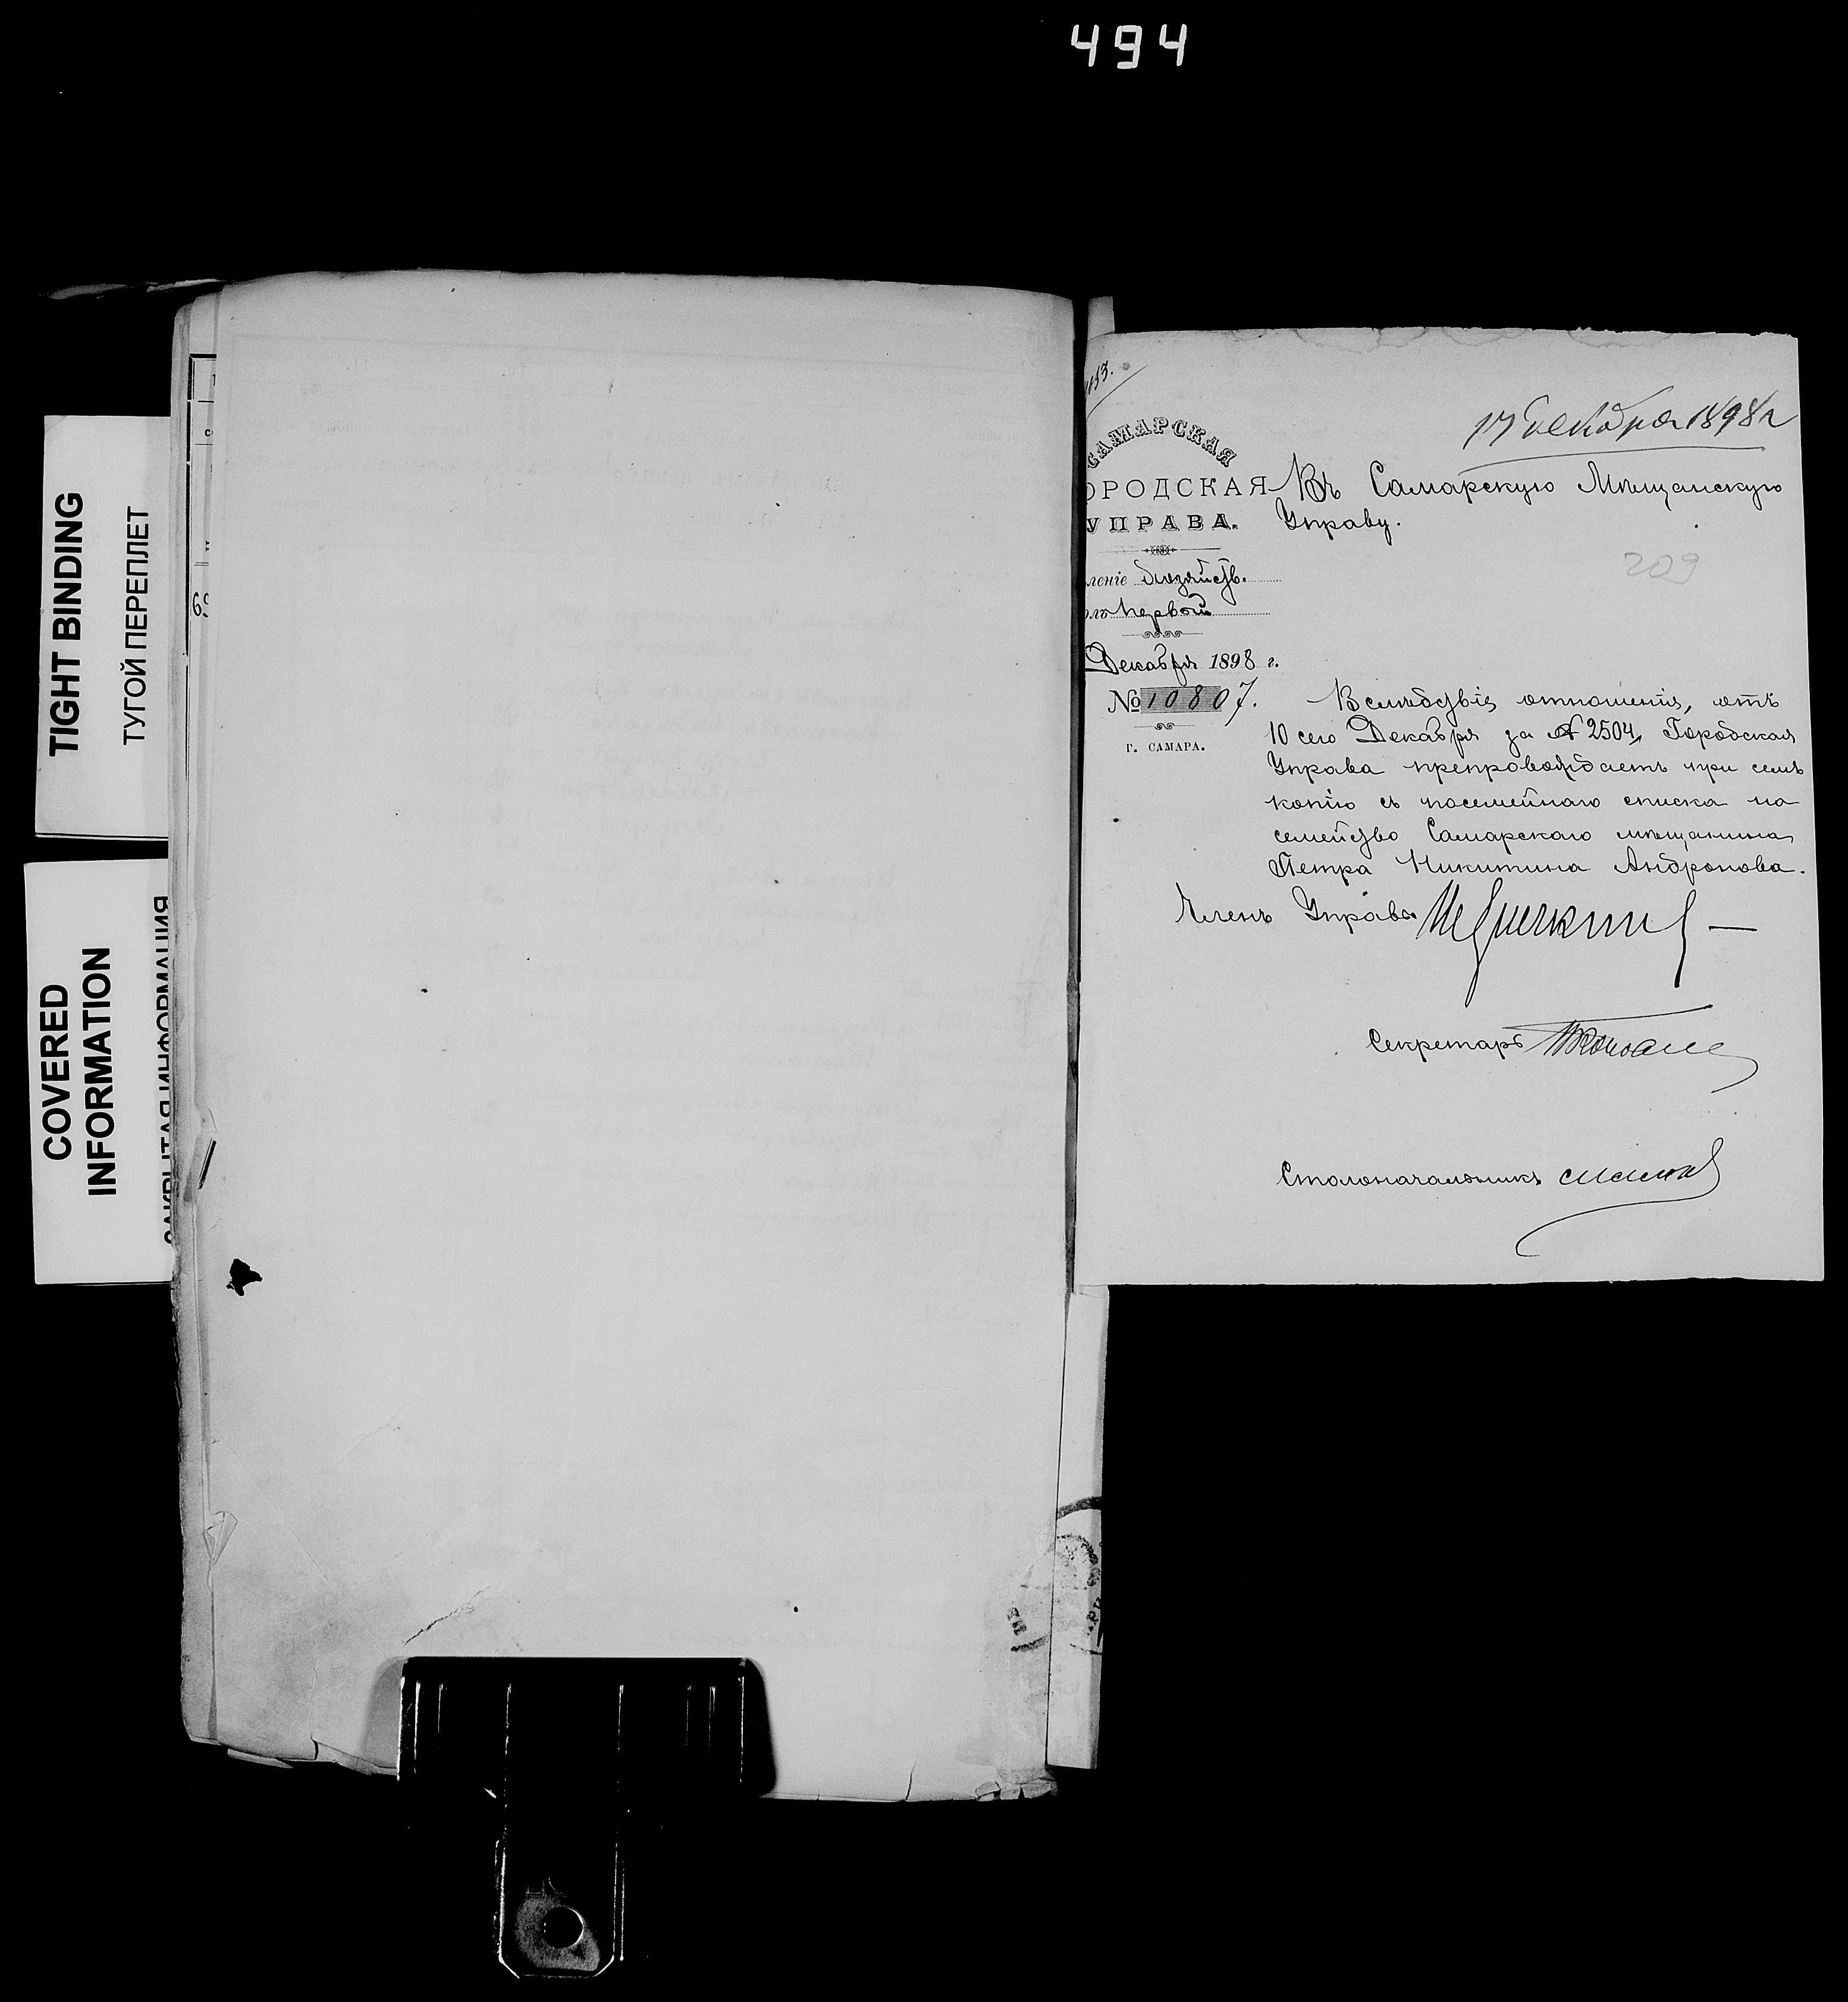 494
TIGHT BINDING
ТУГОЙ ПЕРЕПЛЕТ
COVERED
INFORMATION
ЗАКРЫТАЯ ИНФОРМАЦИЯ
69
17 Декабря 1898 г
САМАРСКАЯ
ОРОДСКАЯ
УПРАВА.
Въ Самарскую Мѣщанскую
Управу.
209
леніе Хозяйств.
олъ Первый
Декабря 1898 г.
№ 10807.
Г. САМАРА.
Вслѣдствіе отношенія, отъ
10 сего Декабря за № 2504, Городская
Управа препровождаетъ при семъ
копію съ посемейнаго списка на
семейство Самарскаго мѣщанина
Петра Никитина Андронова.
Членъ Управы
Секретарь
Столоначальникъ